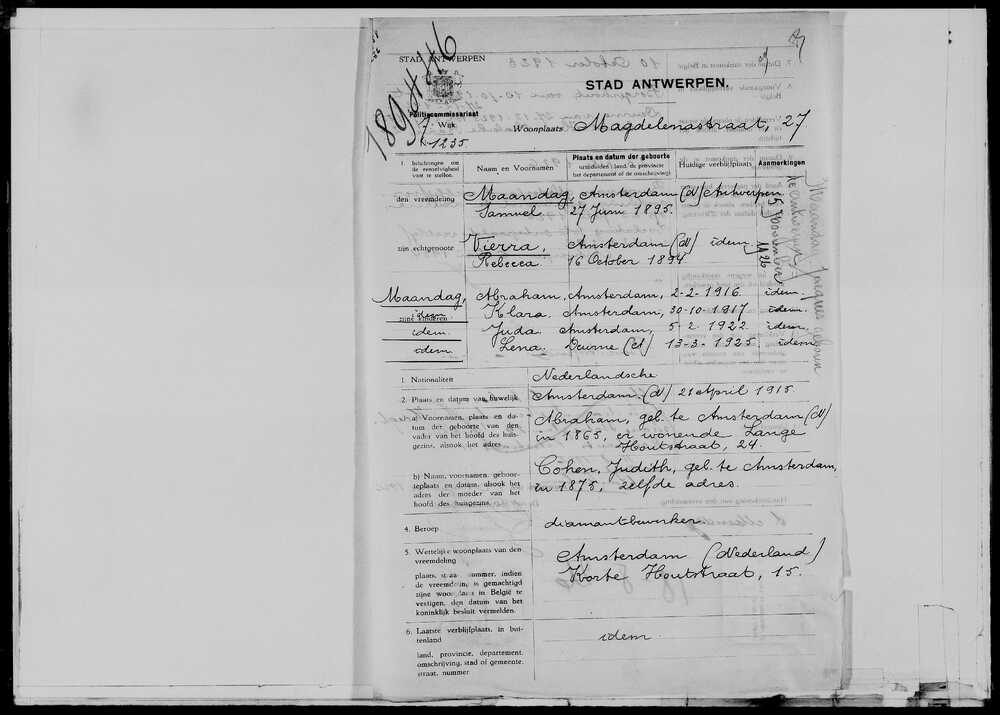 189446
STAD ANTWERPEN
Politiecommissariaat
Wijk
N 1235
STAD ANTWERPEN.
Woonplaats Magdelenastraat, 27
1. Inlichtingen om de eenzelvigheid vast te stellen.
Naam en Voornamen
Plaats en datum der geboorte
aanduiden : land, de provincie
het departement of de omschrijving)
Huidige verblijfplaats
Aanmerkingen
den vreemdeling Maandag, Amsterdam (N) Antwerpen
Samuel 27 Juni 1895.
zijn echtgenoote Vierra, Amsterdam (N) idem
Rebecca. 16 October 1894
Maandag, Abraham, Amsterdam, 2-2-1916. idem.
idem. Klara. Amsterdam, 30-10-1917 idem.
zijne kinderen
idem. Juda. Amsterdam, 5-2-1922 idem.
idem. Lena. Deurne (A) 13-3-1925. idem.
Maandag Jacques geboren
te Antwerpen
5 November
1926
1. Nationaliteit Nederlandsche
2. Plaats en datum van huwelijk Amsterdam. (N) 21 April 1915.
a) Voornamen, plaats en datum der geboorte van den vader van het hoofd des huisgezins, alsook het adres
Abraham, geb. te Amsterdam (N)
in 1865, er wonende Lange
Houtstraat, 24.
b) Naam, voornamen, geboorteplaats en datum, alsook het adres der moeder van het hoofd des huisgezins.
Cohen, Judith, geb. te Amsterdam,
in 1875, zelfde adres.
4. Beroep diamantbewerker.
5. Wettelijke woonplaats van den vreemdeling
plaats, straat nummer, indien de vreemdeling is gemachtigd zijne woonplaats in België te vestigen, den datum van het koninklijk besluit vermelden.
Amsterdam (Nederland)
Korte Houtstraat, 15.
6. Laatste verblijfplaats, in buitenland
land, provincie, departement, omschrijving, stad of gemeente, straat, nummer
idem.